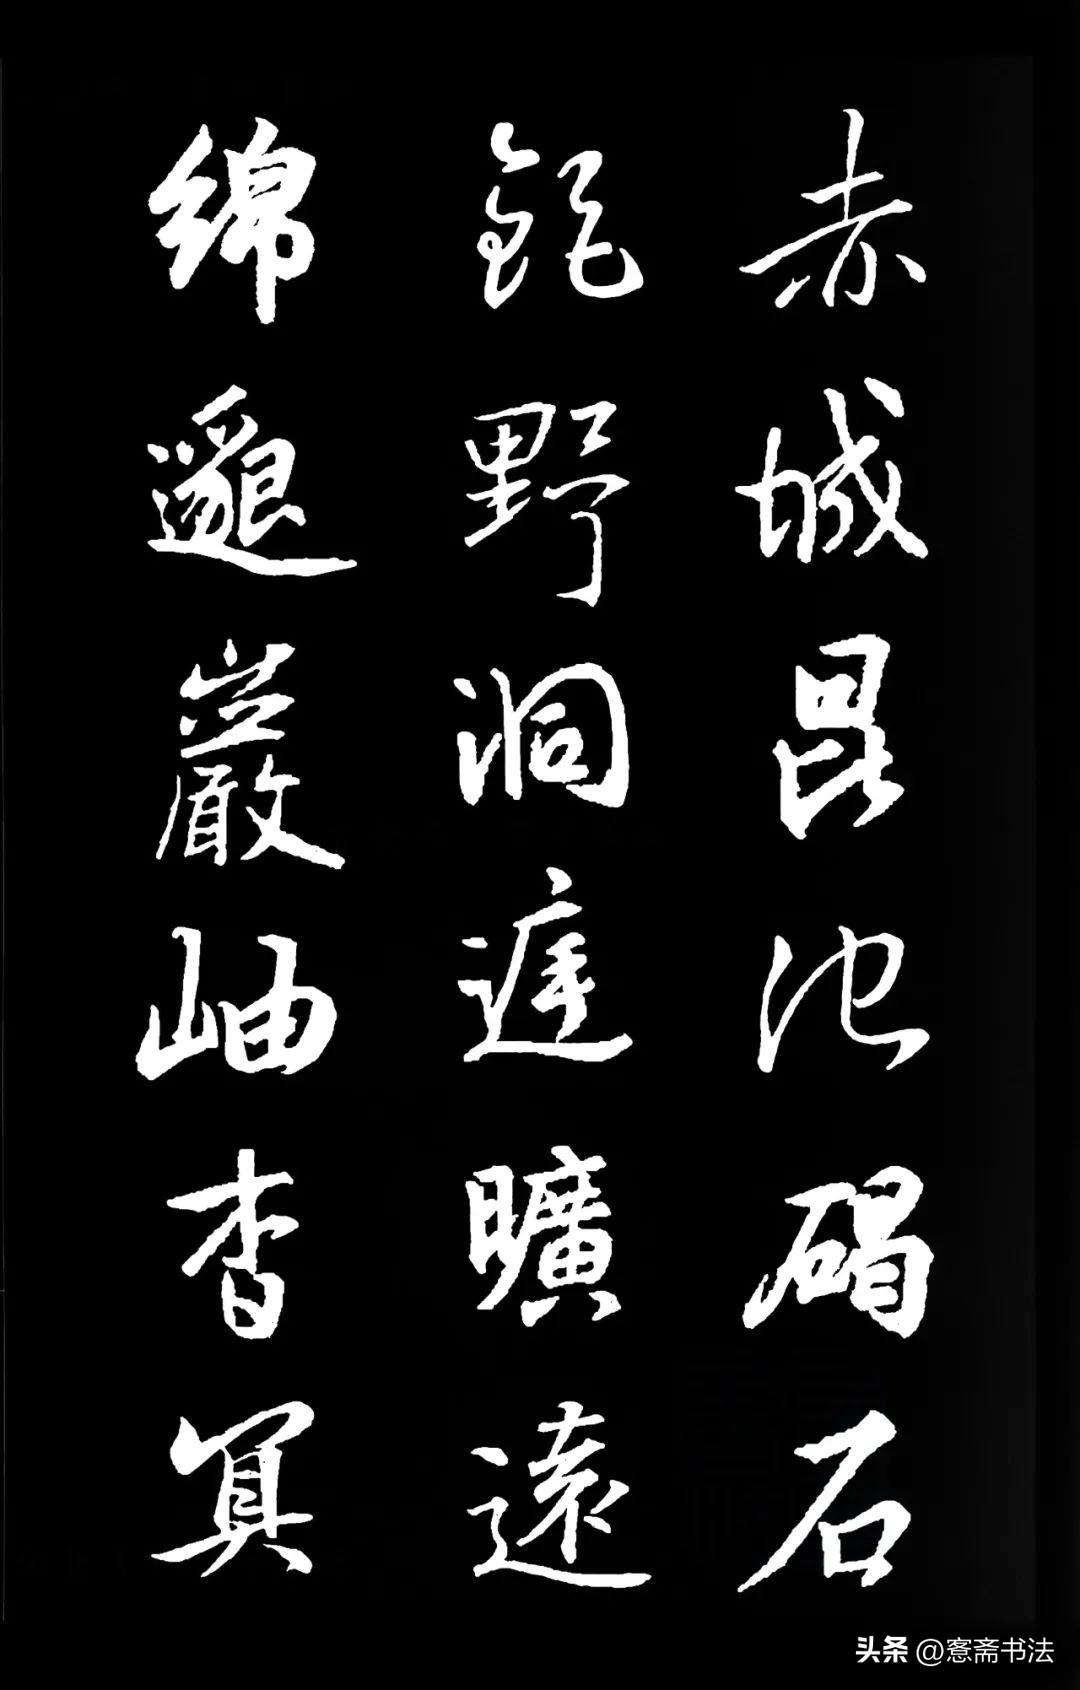 赤城昆池碣石
鉅野洞庭曠遠
綿邈巖岫杳冥
头条 @窓斋书法